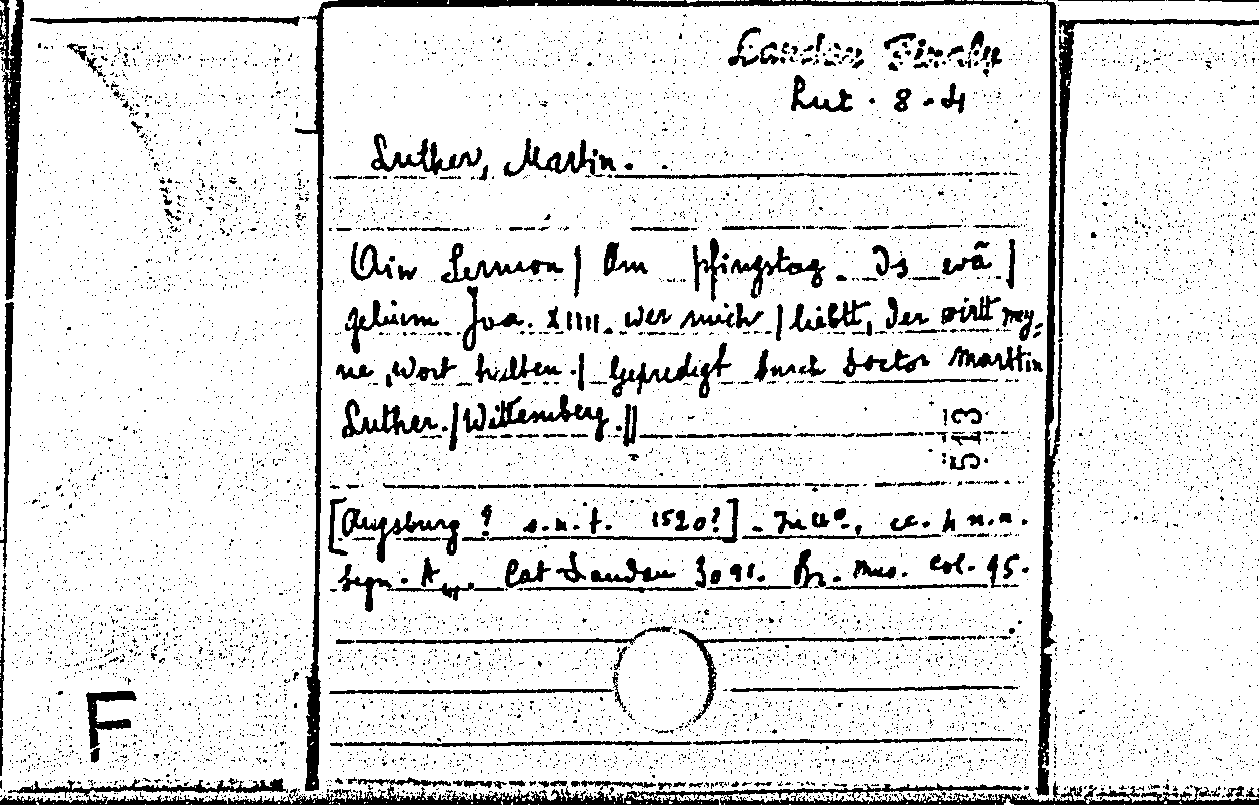 Landau Finaly
Lut. 8-4
Luther, Martin.
Ain Sermon | Am | pfingstag. Ds evã |
gelium Joa. XIIII. wer mich | liebtt, der wirtt mey-
ne, Wort halten. | Gepredigt durch Doctor Marttin
Luther. | Wittemberg. ||
513
[Augsburg ? s.n.t. 1520?] - In 4º, cc. 4 n.n.
Segn. A Cat Landau 3091. Br. Mus. col. 95.
F